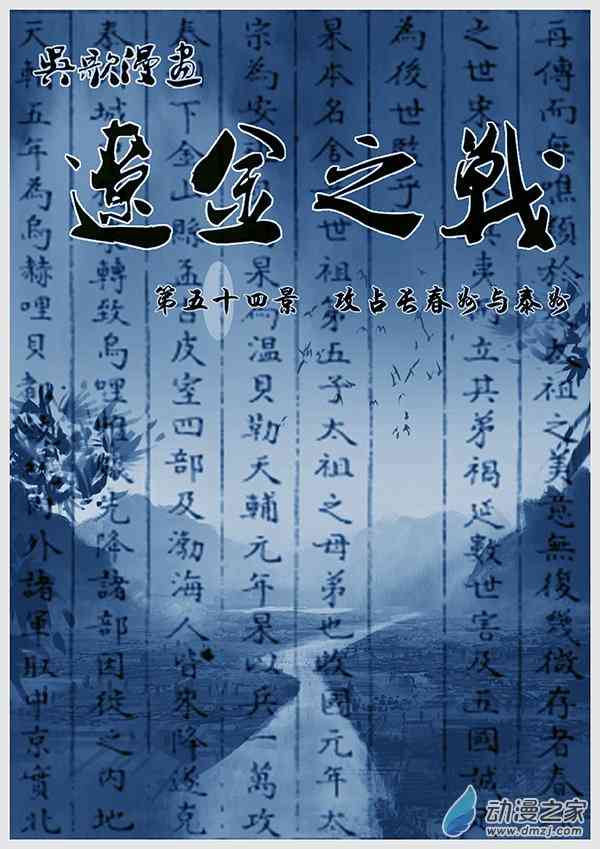 吳歌漫畫
遼金之戰
第五十四景 攻占长春州与泰州
再傳而無噍類於太祖之美意無復幾微存者春
之世宋其夷立其弟褐延數世害及五國誠
為後世監乎
杲本名舍世祖第五子太祖之母弟也收國元年太
宗為安杲温貝勒天輔元年杲以兵一萬攻
下金山縣孟古皮室四部及渤海人皆來降遂克
泰城轉致烏哩先降諸部因徙之内地
天輔五年為烏赫哩貝外諸軍取中京實北
动漫之家
www.dmzj.com